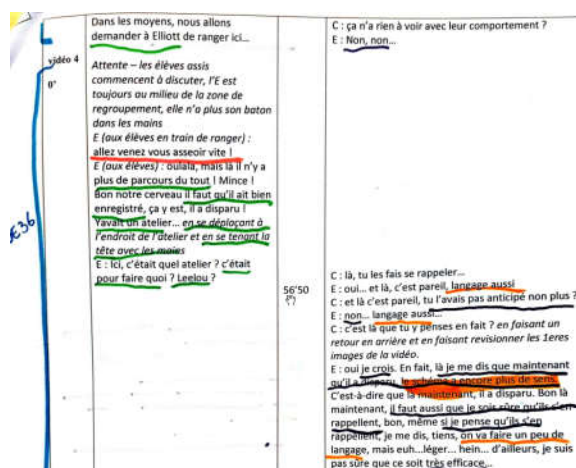 Dans les moyens, nous allons
demander à Elliott de ranger ici...
vidéo 4
0"
Attente – les élèves assis
commencent à discuter, l'E est
toujours au milieu de la zone de
regroupement, elle n'a plus son baton
dans les mains
E (aux élèves en train de ranger) :
allez venez vous asseoir vite !
E (aux élèves) : oulala, mais là il n'y a
plus de parcours du tout ! Mince !
Bon notre cerveau il faut qu'il ait bien
enregistré, ça y est, il a disparu !
Yavait un atelier... en se déplaçant à
l'endroit de l'atelier et en se tenant la
tête avec les mains
E : Ici, c'était quel atelier ? c'était
pour faire quoi ? Leelou ?
E36
56'50
C : ça n'a rien à voir avec leur comportement ?
E : Non, non...
C : là, tu les fais se rappeler...
E : oui... et là, c'est pareil, langage aussi
C : et là c'est pareil, tu l'avais pas anticipé non plus ?
E : non... langage aussi...
C : c'est là que tu y penses en fait ? en faisant un
retour en arrière et en faisant revisionner les 1eres
images de la vidéo.
E : oui je crois. En fait, là je me dis que maintenant
qu'il a disparu, le schéma a encore plus de sens.
C'est-à-dire que là maintenant, il a disparu. Bon là
maintenant, il faut aussi que je sois sûre qu'ils s'en
rappellent, bon, même si je pense qu'ils s'en
rappellent, je me dis, tiens, on va faire un peu de
langage, mais euh...léger... hein... d'ailleurs, je suis
pas sûre que ce soit très efficace...